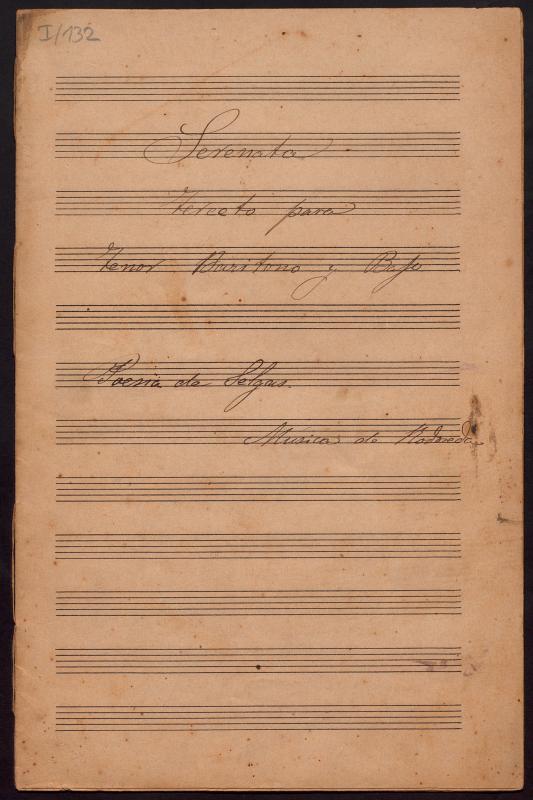 I/132
Serenata
Terceto para
Tenor Baritono y Bajo
Poesia de Selgas.
Música de Rodoreda